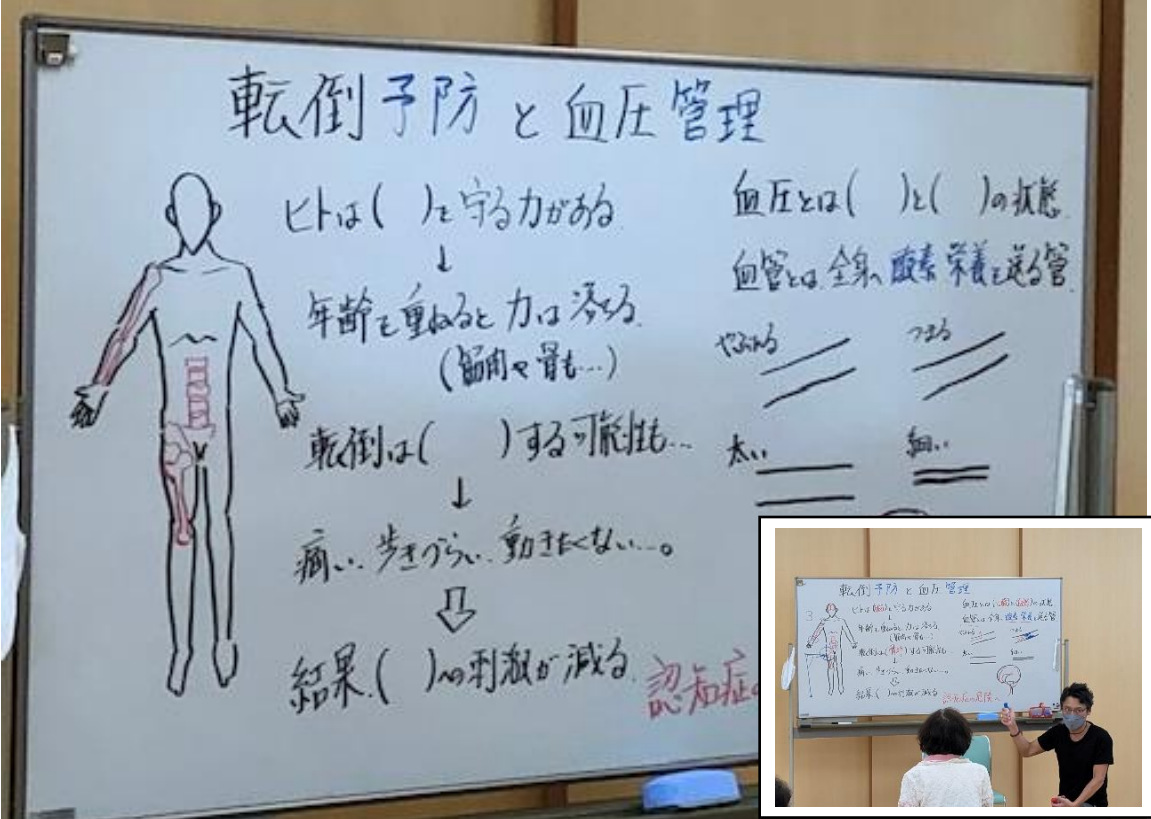 転倒予防と血圧管理
ヒトは( )を守る力がある
↓
年齢を重ねると力は落ちる
(筋肉や骨も…)
転倒は( )する可能性も…
↓
痛い、歩きづらい、動きたくない…。
⇩
結果、( )への刺激が減る
認知症
血圧とは( )と( )の状態
血管とは全身へ酸素 栄養を送る管
やぶれる
つまる
太い
細い
転倒予防と血圧管理